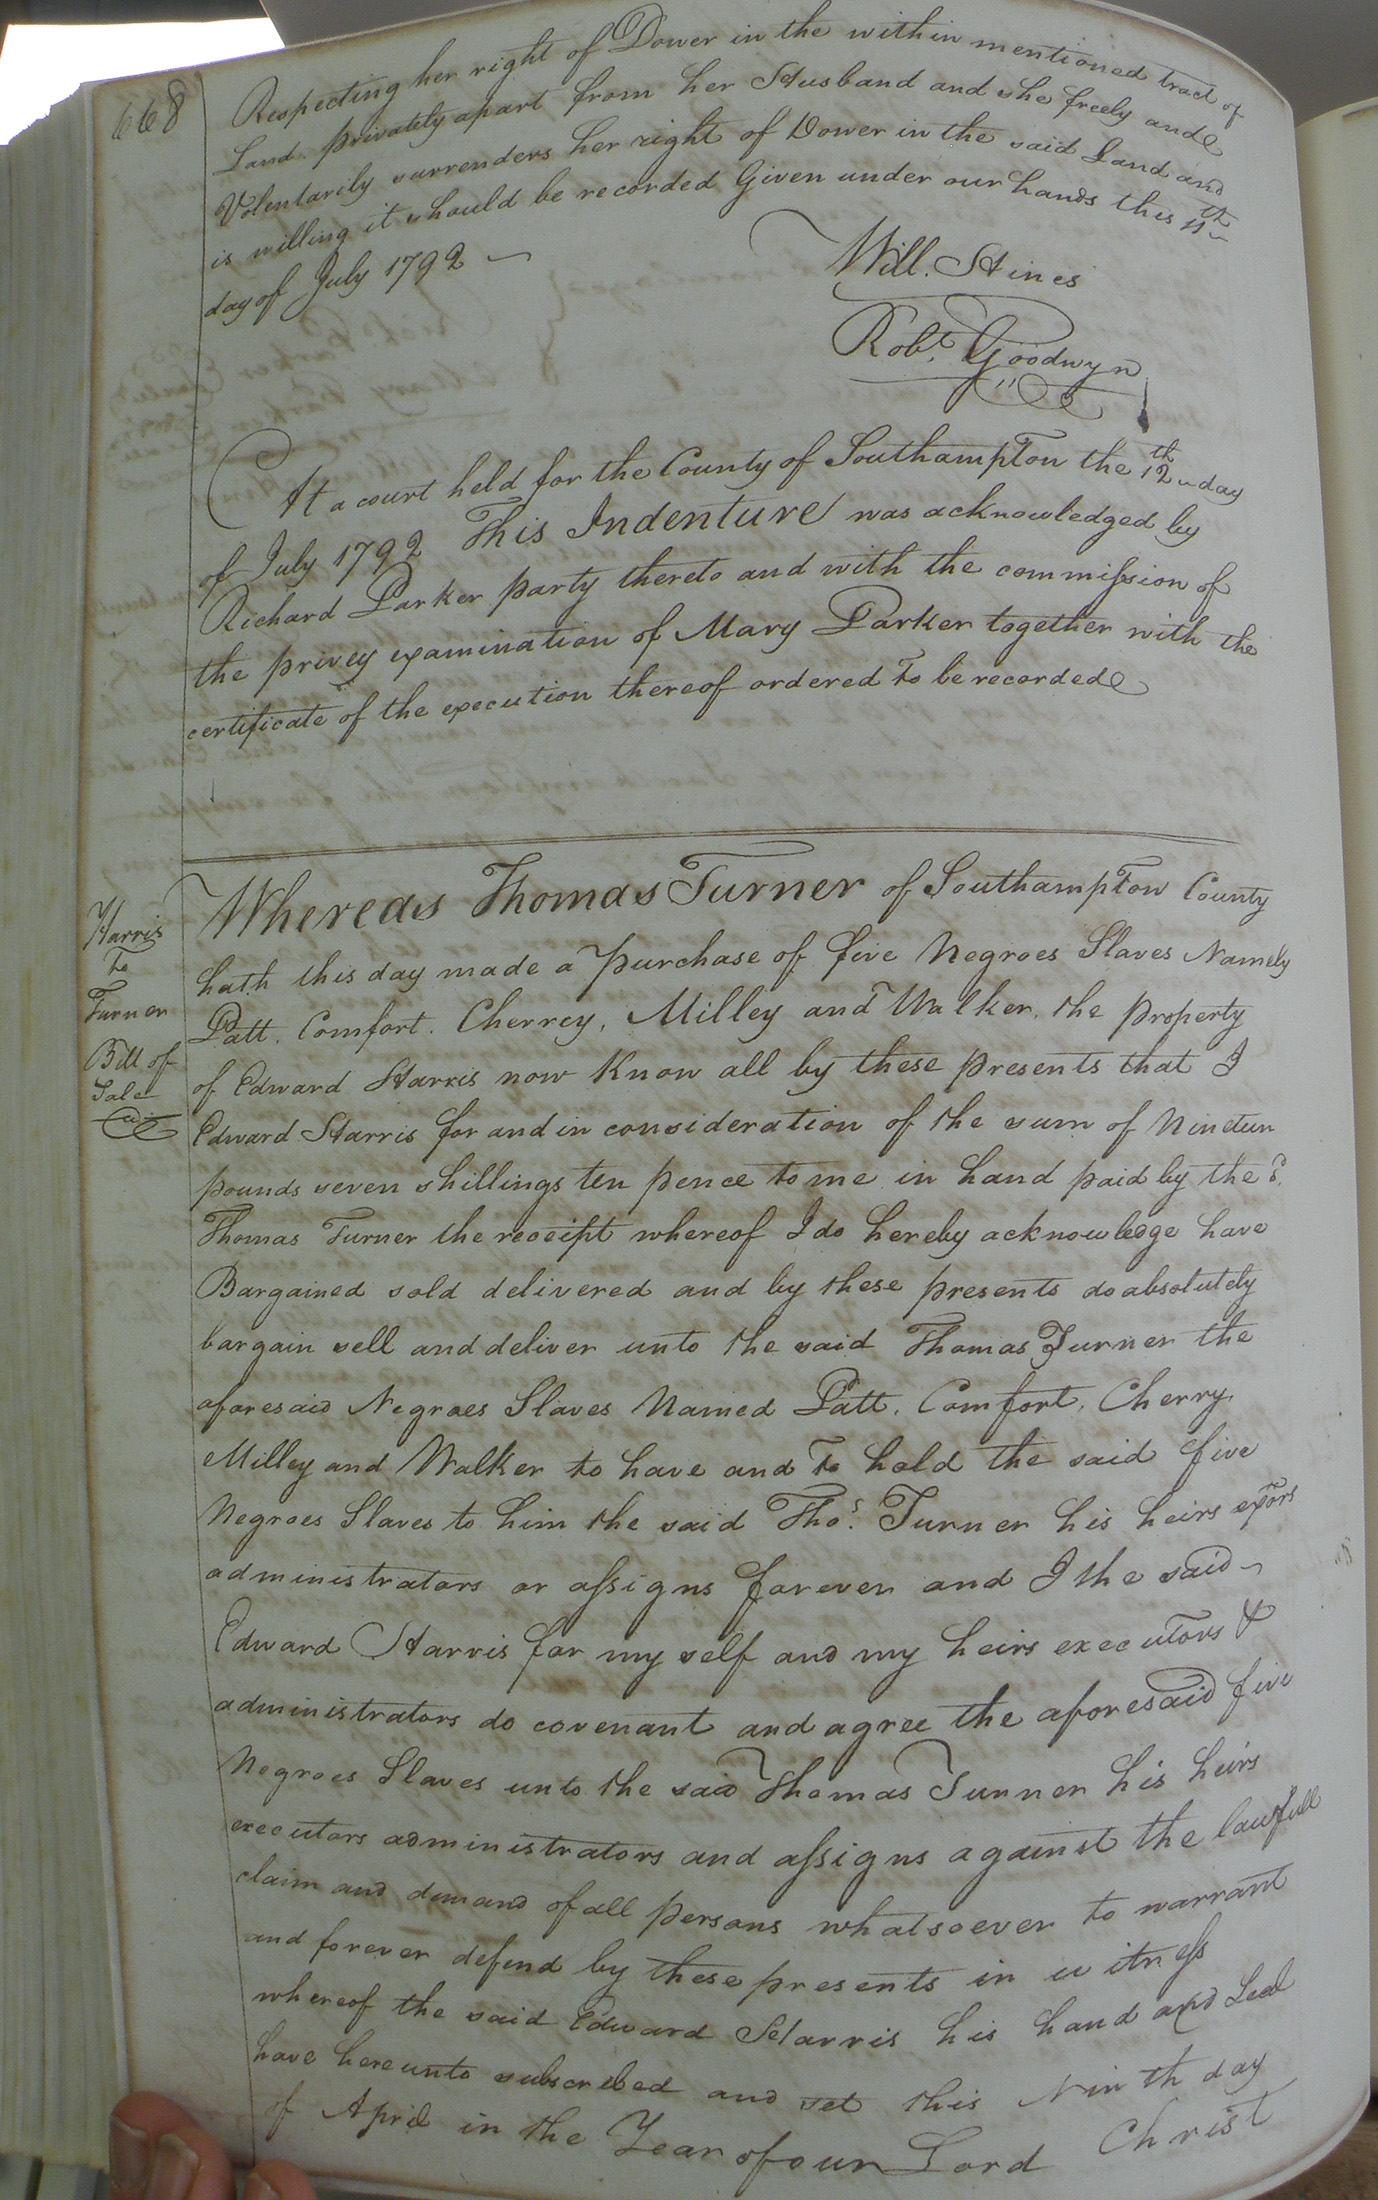 668
Respecting her right of Dower in the within mentioned tract of
Land privately apart from her Husband and she freely and
Volentarily surrenders her right of Dower in the said Land and
is willing it should be recorded Given under our hands this 11th
day of July 1792
Will. Hines
Robt. Goodwyn
At a court held for the County of Southampton the 12th day
of July 1792 This Indenture was acknowledged by
Richard Parker party thereto and with the commission of
the privey examination of Mary Parker together with the
certificate of the execution thereof ordered to be recorded
Harris
To
Turner
Bill of
Sale
Whereas Thomas Turner of Southampton County
hath this day made a purchase of five Negroes Slaves Namely
Patt. Comfort. Cherrey, Milley and Walker, the property
of Edward Harris now Know all by these presents that I
Edward Harris for and in consideration of the sum of Nineteen
pounds seven shillings ten pence to me in hand paid by the sd.
Thomas Turner the receipt whereof I do hereby acknowledge have
Bargained sold delivered and by these presents do absolutely
bargain sell and deliver unto the said Thomas Turner the
aforesaid Negroes Slaves Named Patt, Comfort, Cherry
Milley and Walker to have and to hold the said five
Negroes Slaves to him the said Thos. Turner his heirs exors
administrators or assigns forever and I the said
Edward Harris for my self and my heirs executors &
administrators do covenant and agree the aforesaid five
Negroes Slaves unto the said Thomas Turner his heirs
executors administrators and assigns against the lawfull
claim and demand of all persons whatsoever to warrant
and forever defend by these presents in witness
whereof the said Edward Harris his hand and Seal
have hereunto subscribed and set this Ninth day
of April in the Year of our Lord Christ